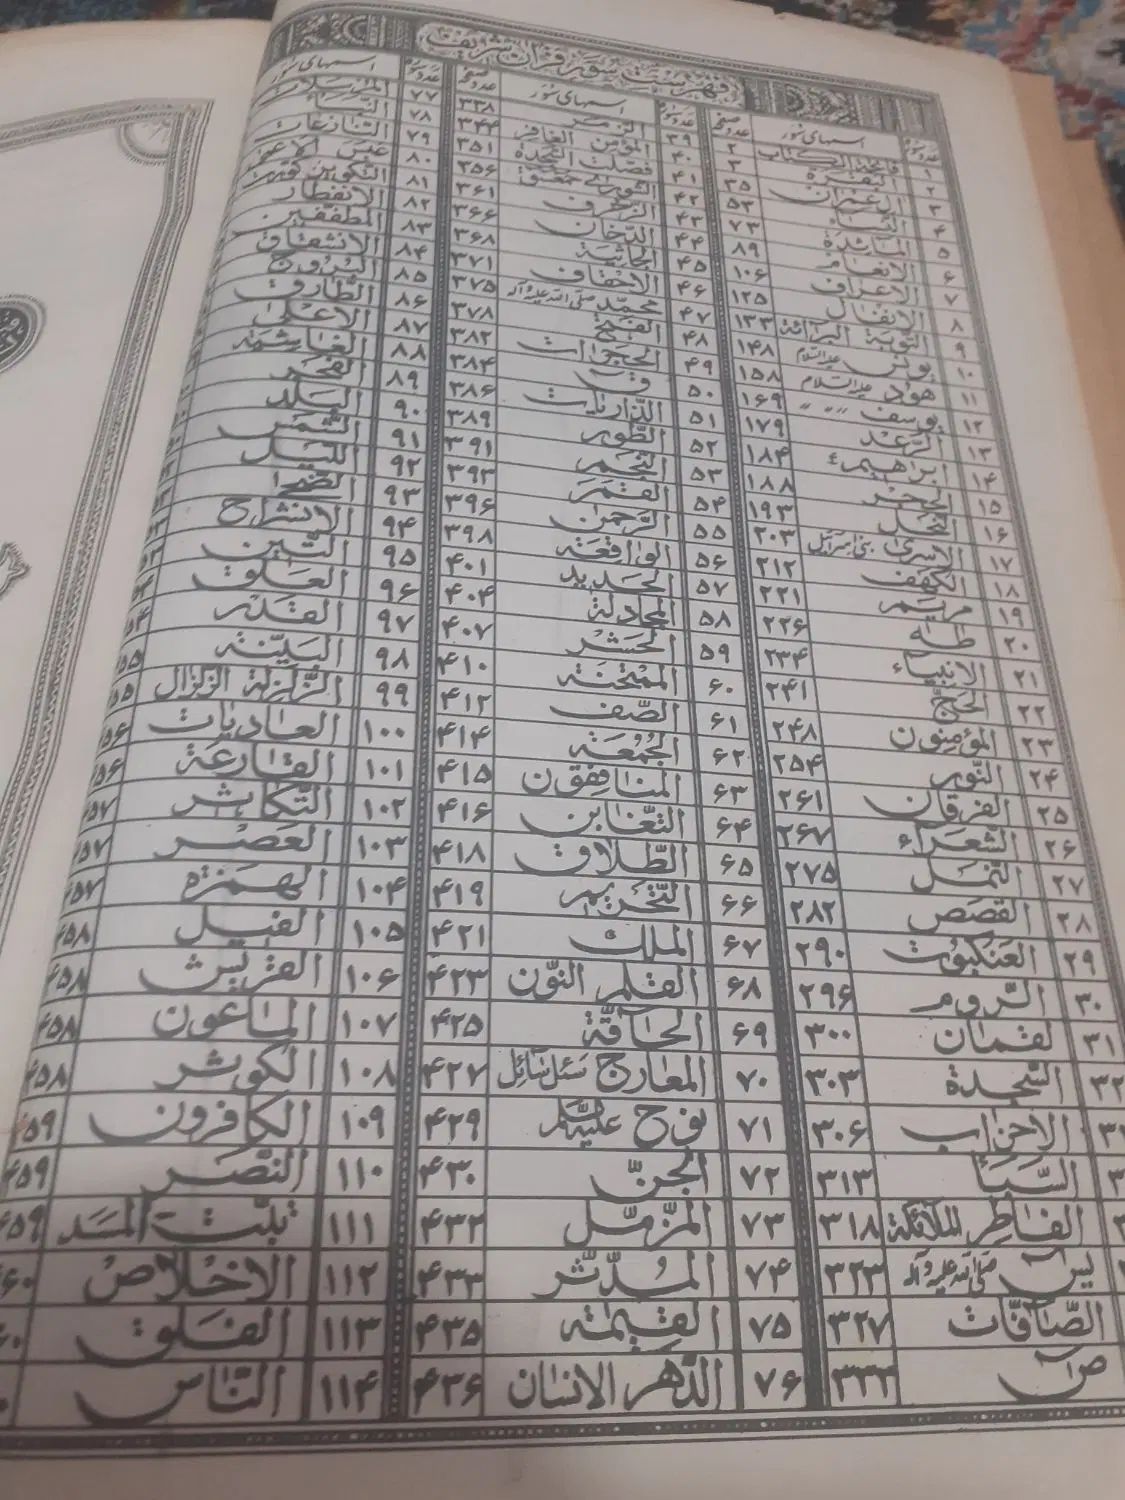 فهرست سور قرآن شریف
عدد سوره اسمهای سور عدد صفحه
۱ فاتحة الکتاب ۲
۲ البقرة ۳
۳ آل عمران ۳۵
۴ النساء ۵۳
۵ المائدة ۷۳
۶ الانعام ۸۹
۷ الاعراف ۱۰۶
۸ الانفال ۱۲۵
۹ التوبة البرائة ۱۳۳
۱۰ یونس علیه السلام ۱۴۸
۱۱ هود علیه السلام ۱۵۸
۱۲ یوسف " " " ۱۶۹
۱۳ الرعد ۱۷۹
۱۴ ابراهیم ۱۸۴
۱۵ الحجر ۱۸۸
۱۶ النحل ۱۹۳
۱۷ الاسری بنی اسرائیل ۲۰۳
۱۸ الکهف ۲۱۲
۱۹ مریم ۲۲۱
۲۰ طه ۲۲۶
۲۱ الانبیاء ۲۳۴
۲۲ الحج ۲۴۱
۲۳ المؤمنون ۲۴۸
۲۴ النور ۲۵۴
۲۵ الفرقان ۲۶۱
۲۶ الشعراء ۲۶۷
۲۷ النمل ۲۷۵
۲۸ القصص ۲۸۲
۲۹ العنکبوت ۲۹۰
۳۰ الروم ۲۹۶
۳۱ لقمان ۳۰۰
۳۲ السجدة ۳۰۳
الاحزاب ۳۰۶
السبأ ۳۱۳
الفاطر الملائکة ۳۱۸
یس صلی الله علیه وآله ۳۲۳
الصافات ۳۲۷
ص ۳۳۳
عدد سوره اسمهای سور عدد صفحه
۳۹ الزمر ۳۳۸
۴۰ المؤمن الغافر ۳۴۴
۴۱ فصلت السجدة ۳۵۱
۴۲ الشوری حمعسق ۳۵۶
۴۳ الزخرف ۳۶۱
۴۴ الدخان ۳۶۶
۴۵ الجاثیة ۳۶۸
۴۶ الاحقاف ۳۷۱
۴۷ محمد صلی الله علیه وآله ۳۷۵
۴۸ الفتح ۳۷۸
۴۹ الحجرات ۳۸۲
۵۰ ق ۳۸۴
۵۱ الذاریات ۳۸۶
۵۲ الطور ۳۸۹
۵۳ النجم ۳۹۱
۵۴ القمر ۳۹۳
۵۵ الرحمن ۳۹۶
۵۶ الواقعة ۳۹۸
۵۷ الحدید ۴۰۱
۵۸ المجادلة ۴۰۴
۵۹ الحشر ۴۰۷
۶۰ الممتحنة ۴۱۰
۶۱ الصف ۴۱۲
۶۲ الجمعة ۴۱۴
۶۳ المنافقون ۴۱۵
۶۴ التغابن ۴۱۶
۶۵ الطلاق ۴۱۸
۶۶ التحریم ۴۱۹
۶۷ الملك ۴۲۱
۶۸ القلم النون ۴۲۳
۶۹ الحاقة ۴۲۵
۷۰ المعارج سئل سائل ۴۲۷
۷۱ نوح علیه السلام ۴۲۹
۷۲ الجن ۴۳۰
۷۳ المزمل ۴۳۲
۷۴ المدثر ۴۳۳
۷۵ القیمة ۴۳۵
۷۶ الدهر الانسان ۴۳۶
عدد سوره اسمهای سور
۷۷ المرسلات
۷۸ النبأ
۷۹ النازعات
۸۰ عبس الاعمی
۸۱ التکویر کورت
۸۲ الانفطار
۸۳ المطففین
۸۴ الانشقاق
۸۵ البروج
۸۶ الطارق
۸۷ الاعلی
۸۸ الغاشیة
۸۹ الفجر
۹۰ البلد
۹۱ الشمس
۹۲ اللیل
۹۳ الضحی
۹۴ الانشراح
۹۵ التین
۹۶ العلق
۹۷ القدر
۹۸ البینة
۹۹ الزلزلة الزلزال
۱۰۰ العادیات
۱۰۱ القارعة
۱۰۲ التکاثر
۱۰۳ العصر
۱۰۴ الهمزه
۱۰۵ الفیل
۱۰۶ القریش
۱۰۷ الماعون
۱۰۸ الکوثر
۱۰۹ الکافرون
۱۱۰ النصر
۱۱۱ تبّت المسد
۱۱۲ الاخلاص
۱۱۳ الفلق
۱۱۴ الناس